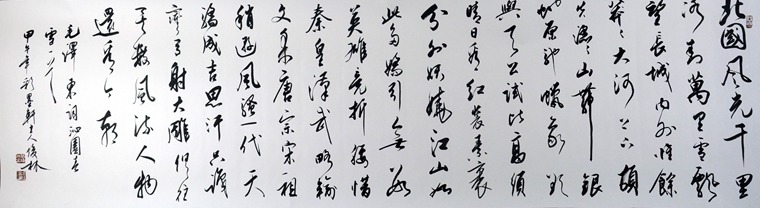 北國风光千里
冰封萬里雪飄
望長城内外惟餘
莽莽大河上下頓
失滔滔山舞銀
蛇原馳蠟象欲
與天公試比高須
晴日看紅裝素裹
分外妖嬈江山如
此多嬌引無數
英雄競折腰惜
秦皇漢武略輸
文采唐宗宋祖
稍遜風騷一代天
驕成吉思汗只識
彎弓射大雕俱往
矣數風流人物
還看今朝
毛澤東詞沁園春
雪
甲午年 軒主 俊林